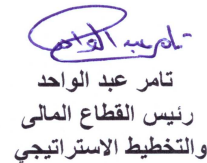 تامر عبد الواحد
تامر عبد الواحد
رئيس القطاع المالى
والتخطيط الاستراتيجي